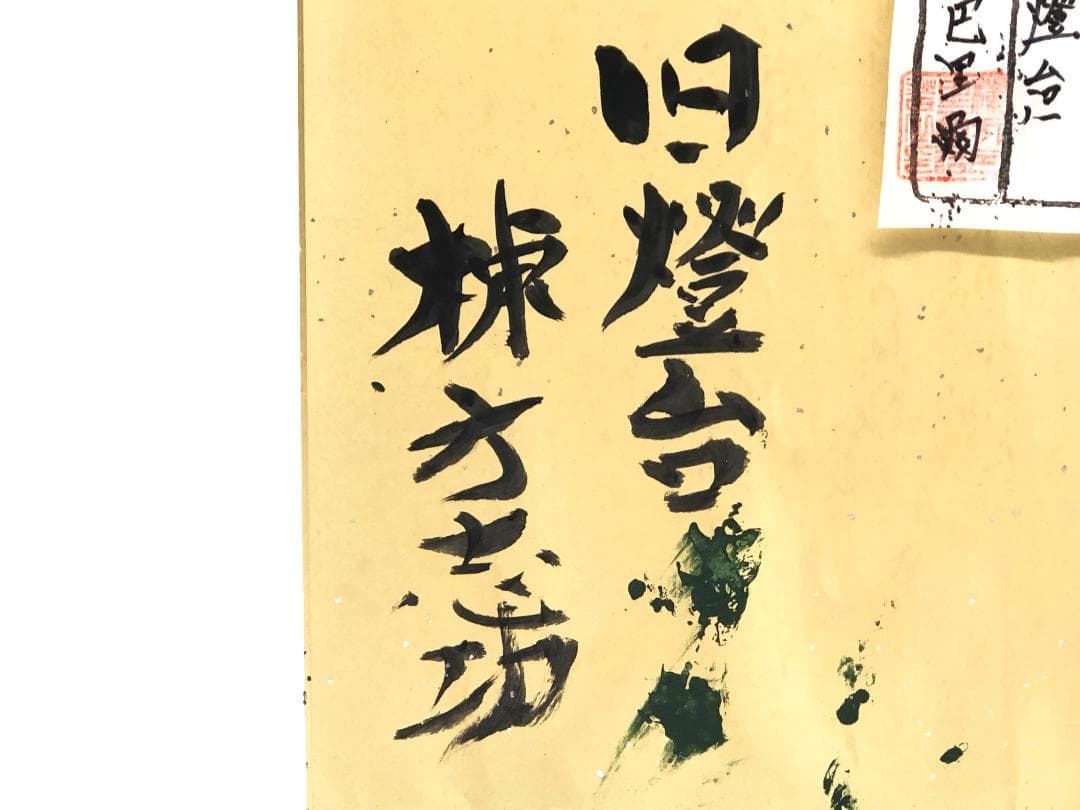 燈台
巴里
旧燈台
棟方志功